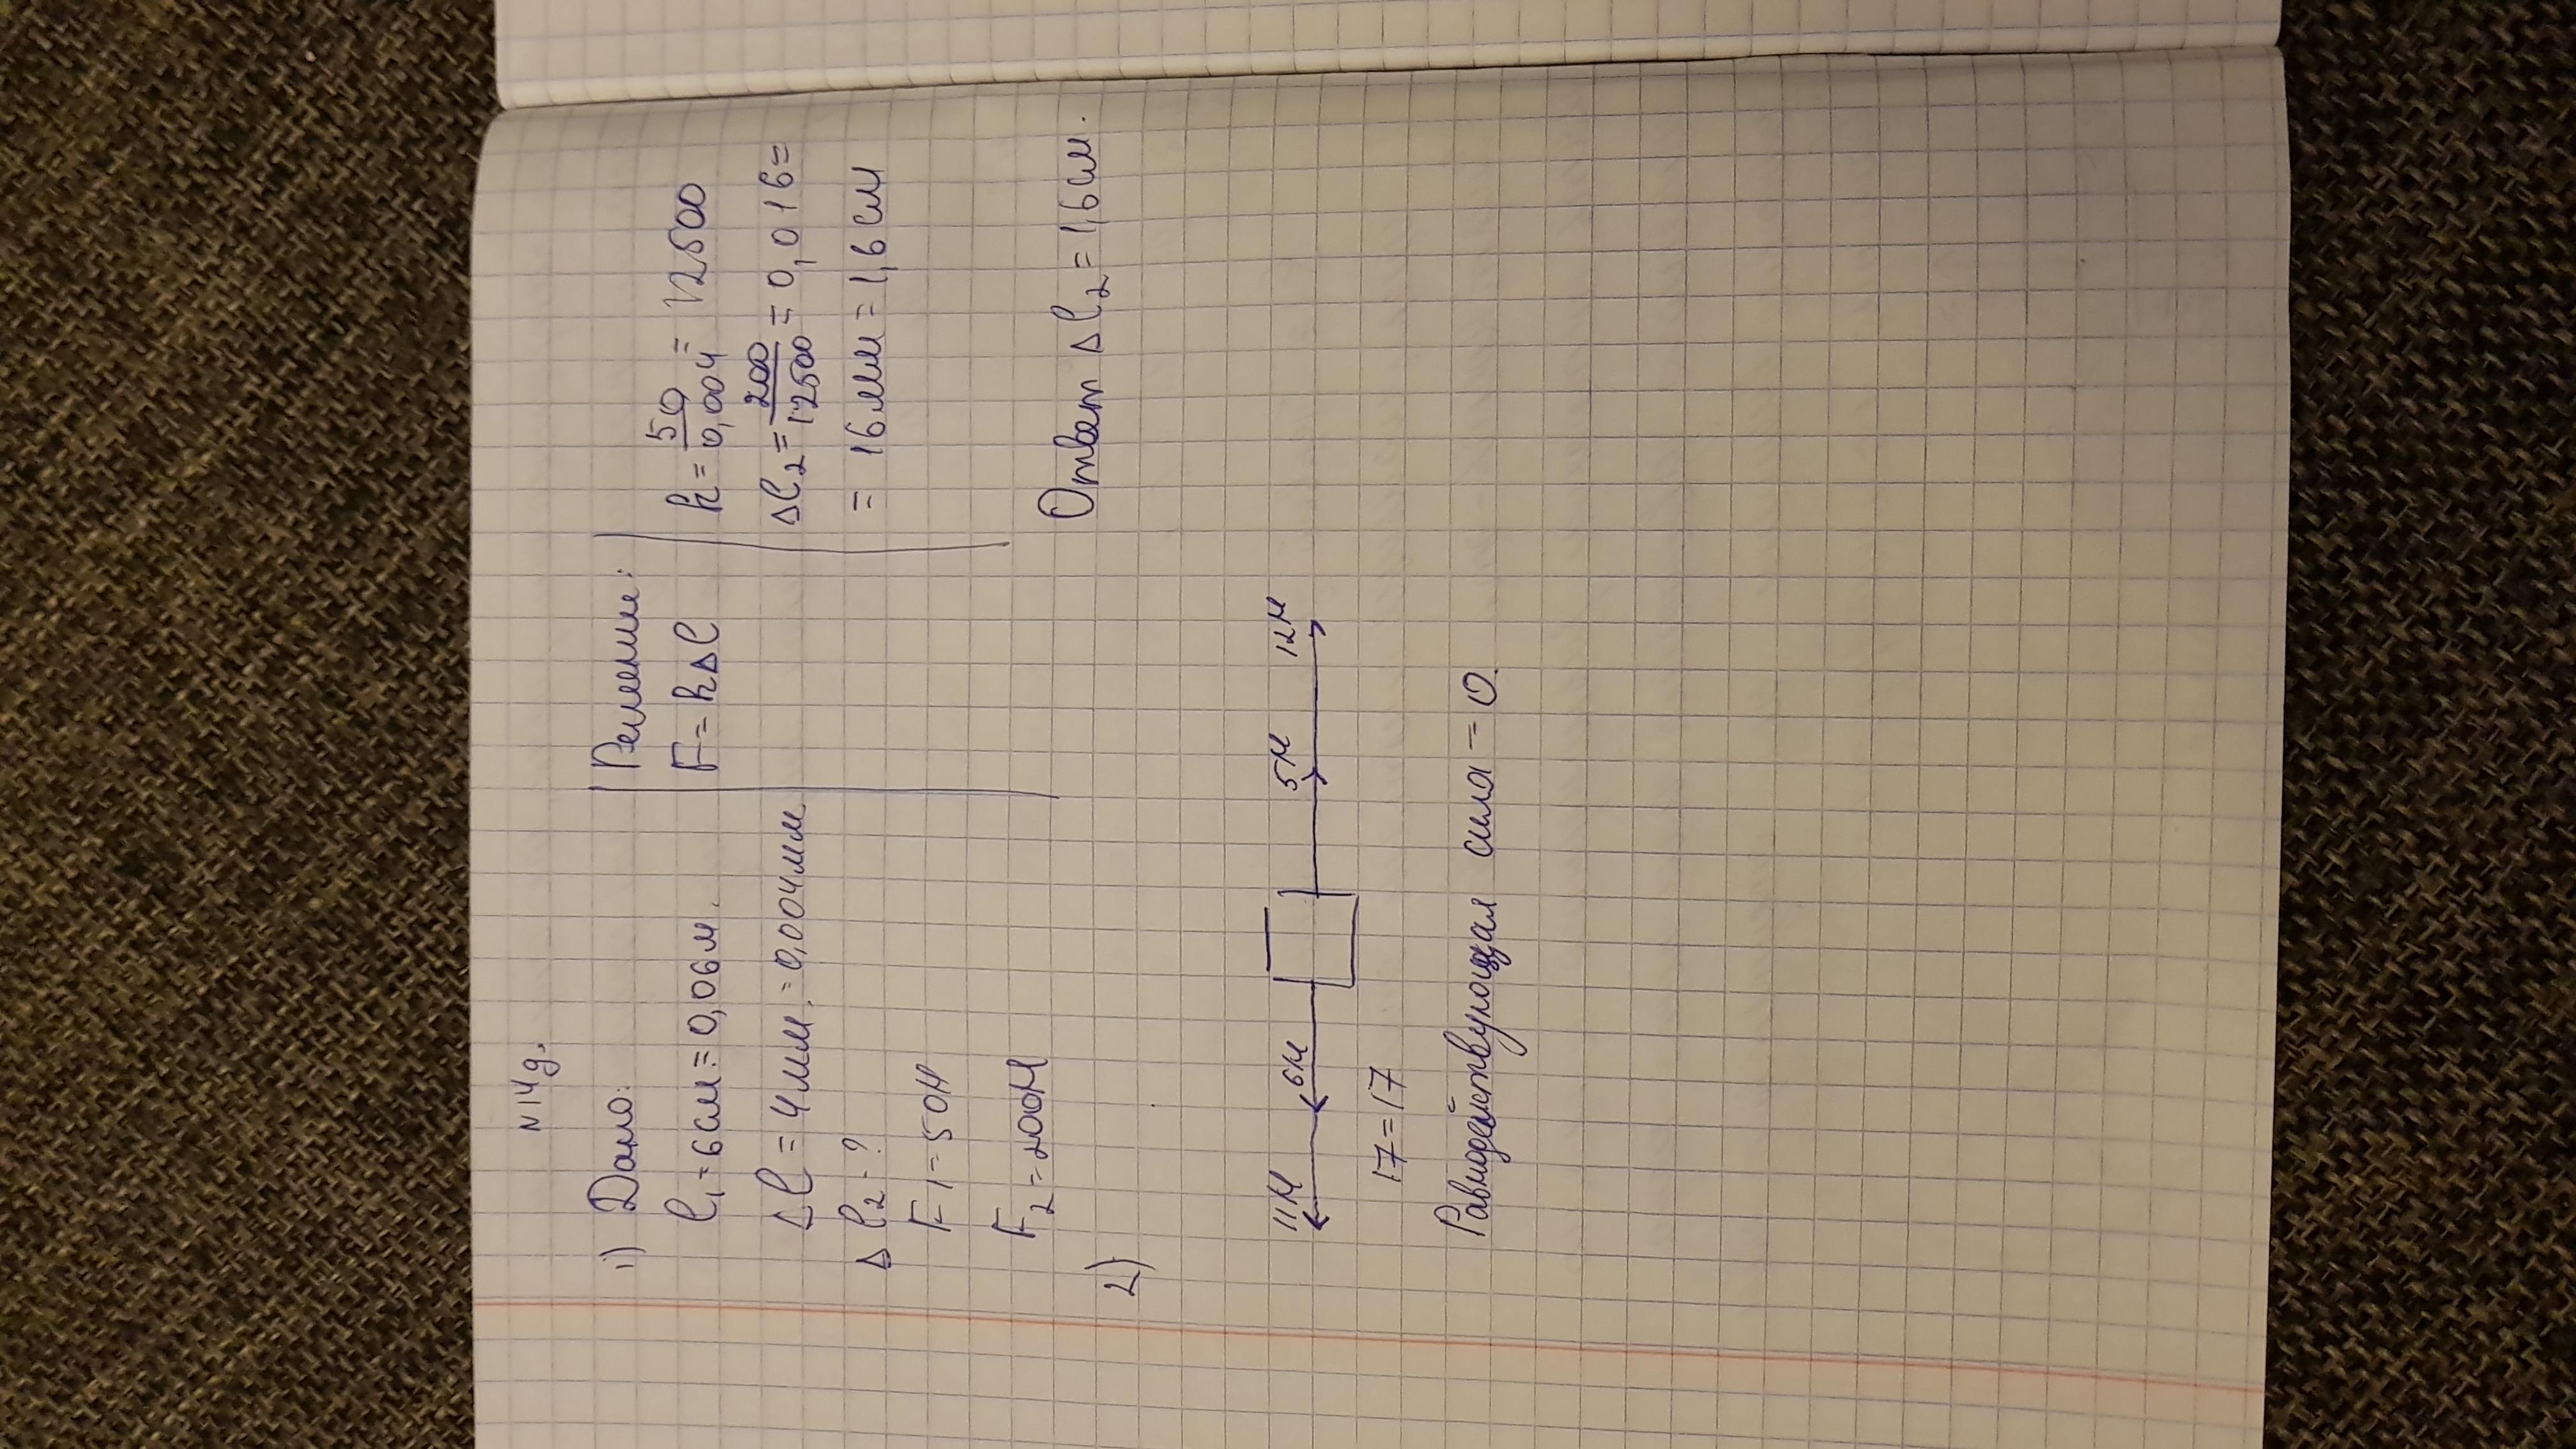 N14g.
1) Дано:
l₁ = 6см = 0,06м.
Δl = 4мм. = 0,004мм
Δl₂ - ?
F1 = 50Н
F₂ = 200Н
Решение:
F = kΔl
k = 50/0,004 = 12500
Δl₂ = 200/12500 = 0,016 =
= 16мм = 1,6см
Ответ Δl₂ = 1,6см.
2)
11Н 6Н 5Н 12Н
17 = 17
Равнодействующая сила – 0.